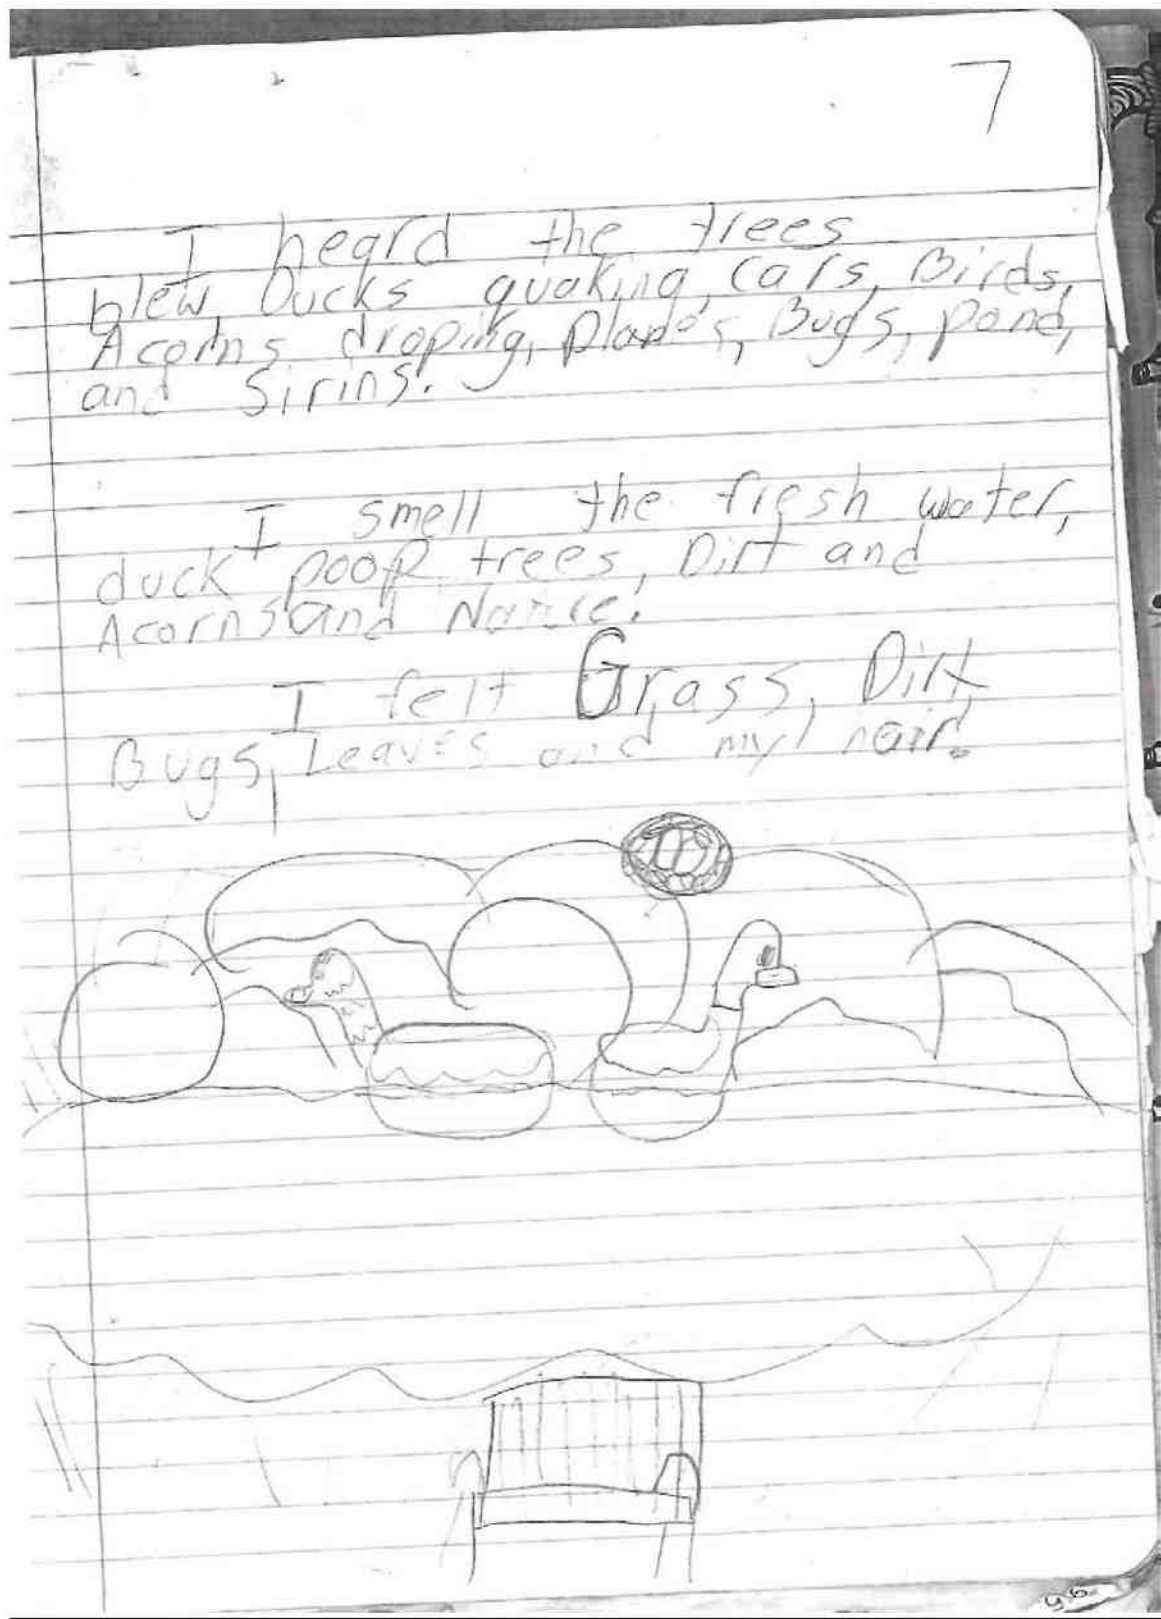 7
I heard the trees
blew, Ducks quaking, cars, Birds,
Acorns droping, Planes, Bugs, pond,
and Sirins.
I smell the fresh water,
duck poop, trees, Dirt and
Acorns and Nature.
I felt Grass, Dirt,
Bugs, Leaves and my hair.